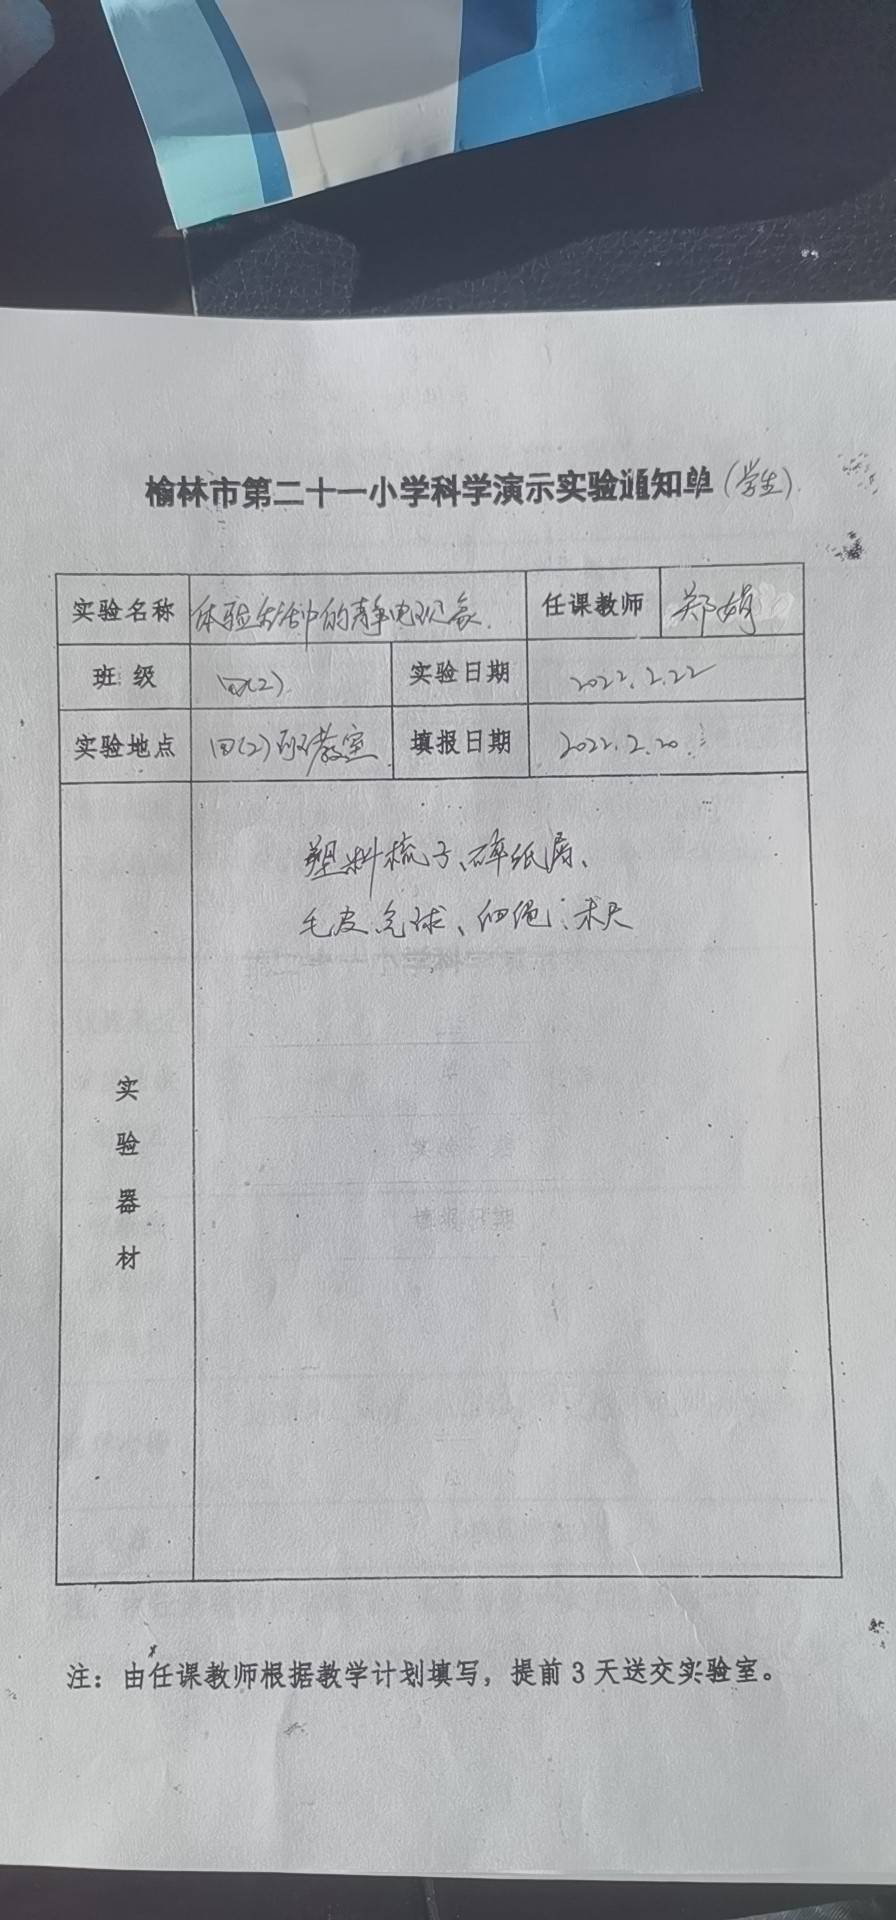 榆林市第二十一小学科学演示实验通知单(学生)
实验名称 体验生活中的静电现象. 任课教师 郑娟
班级 四(2). 实验日期 2022.2.22
实验地点 四(2)班教室 填报日期 2022.2.20.
塑料梳子、碎纸屑、
毛皮 气球、细绳、米尺
实
验
器
材
注：由任课教师根据教学计划填写，提前 3 天送交实验室。